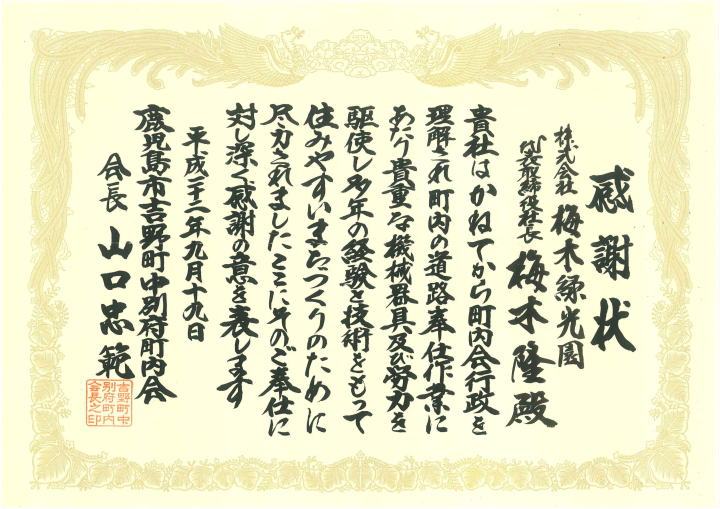 感謝状
株式会社 梅木緑光園
代表取締役社長 梅木隆殿
貴社はかねてから町内会行政を
理解され町内の道路奉仕作業に
あたり貴重な機械器具及び労力を
駆使し多年の経験と技術をもって
住みやすいまちづくりのために
尽力されましたここにそのご奉仕に
対し深く感謝の意を表します
平成二十二年九月十九日
鹿児島市吉野町中別府町内会
会長 山口忠範
吉野町中
別府町内
会長之印